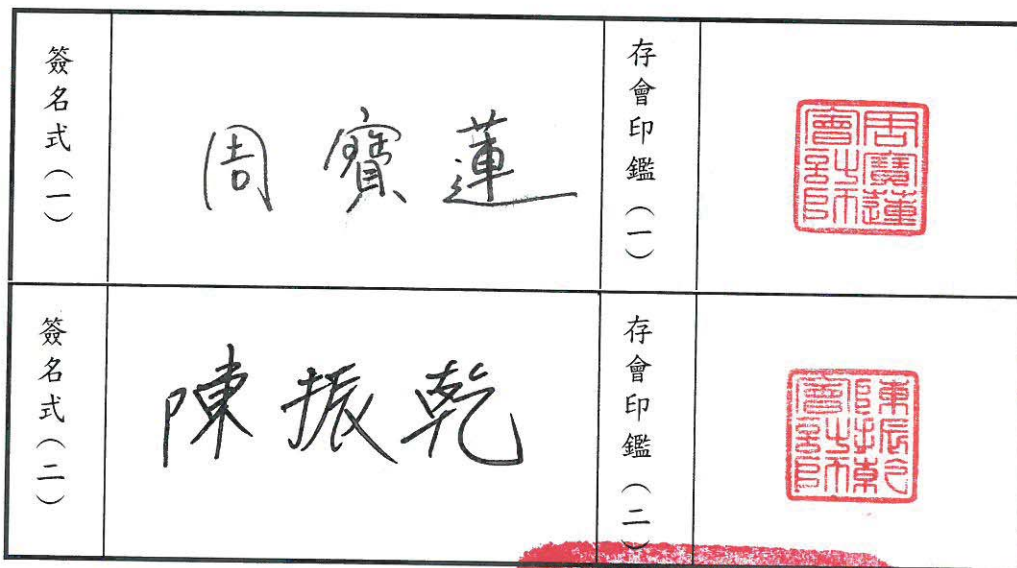 簽名式（一）
周寶蓮
存會印鑑（一）
周寶蓮會計師
簽名式（二）
陳振乾
存會印鑑（二）
陳振乾會計師